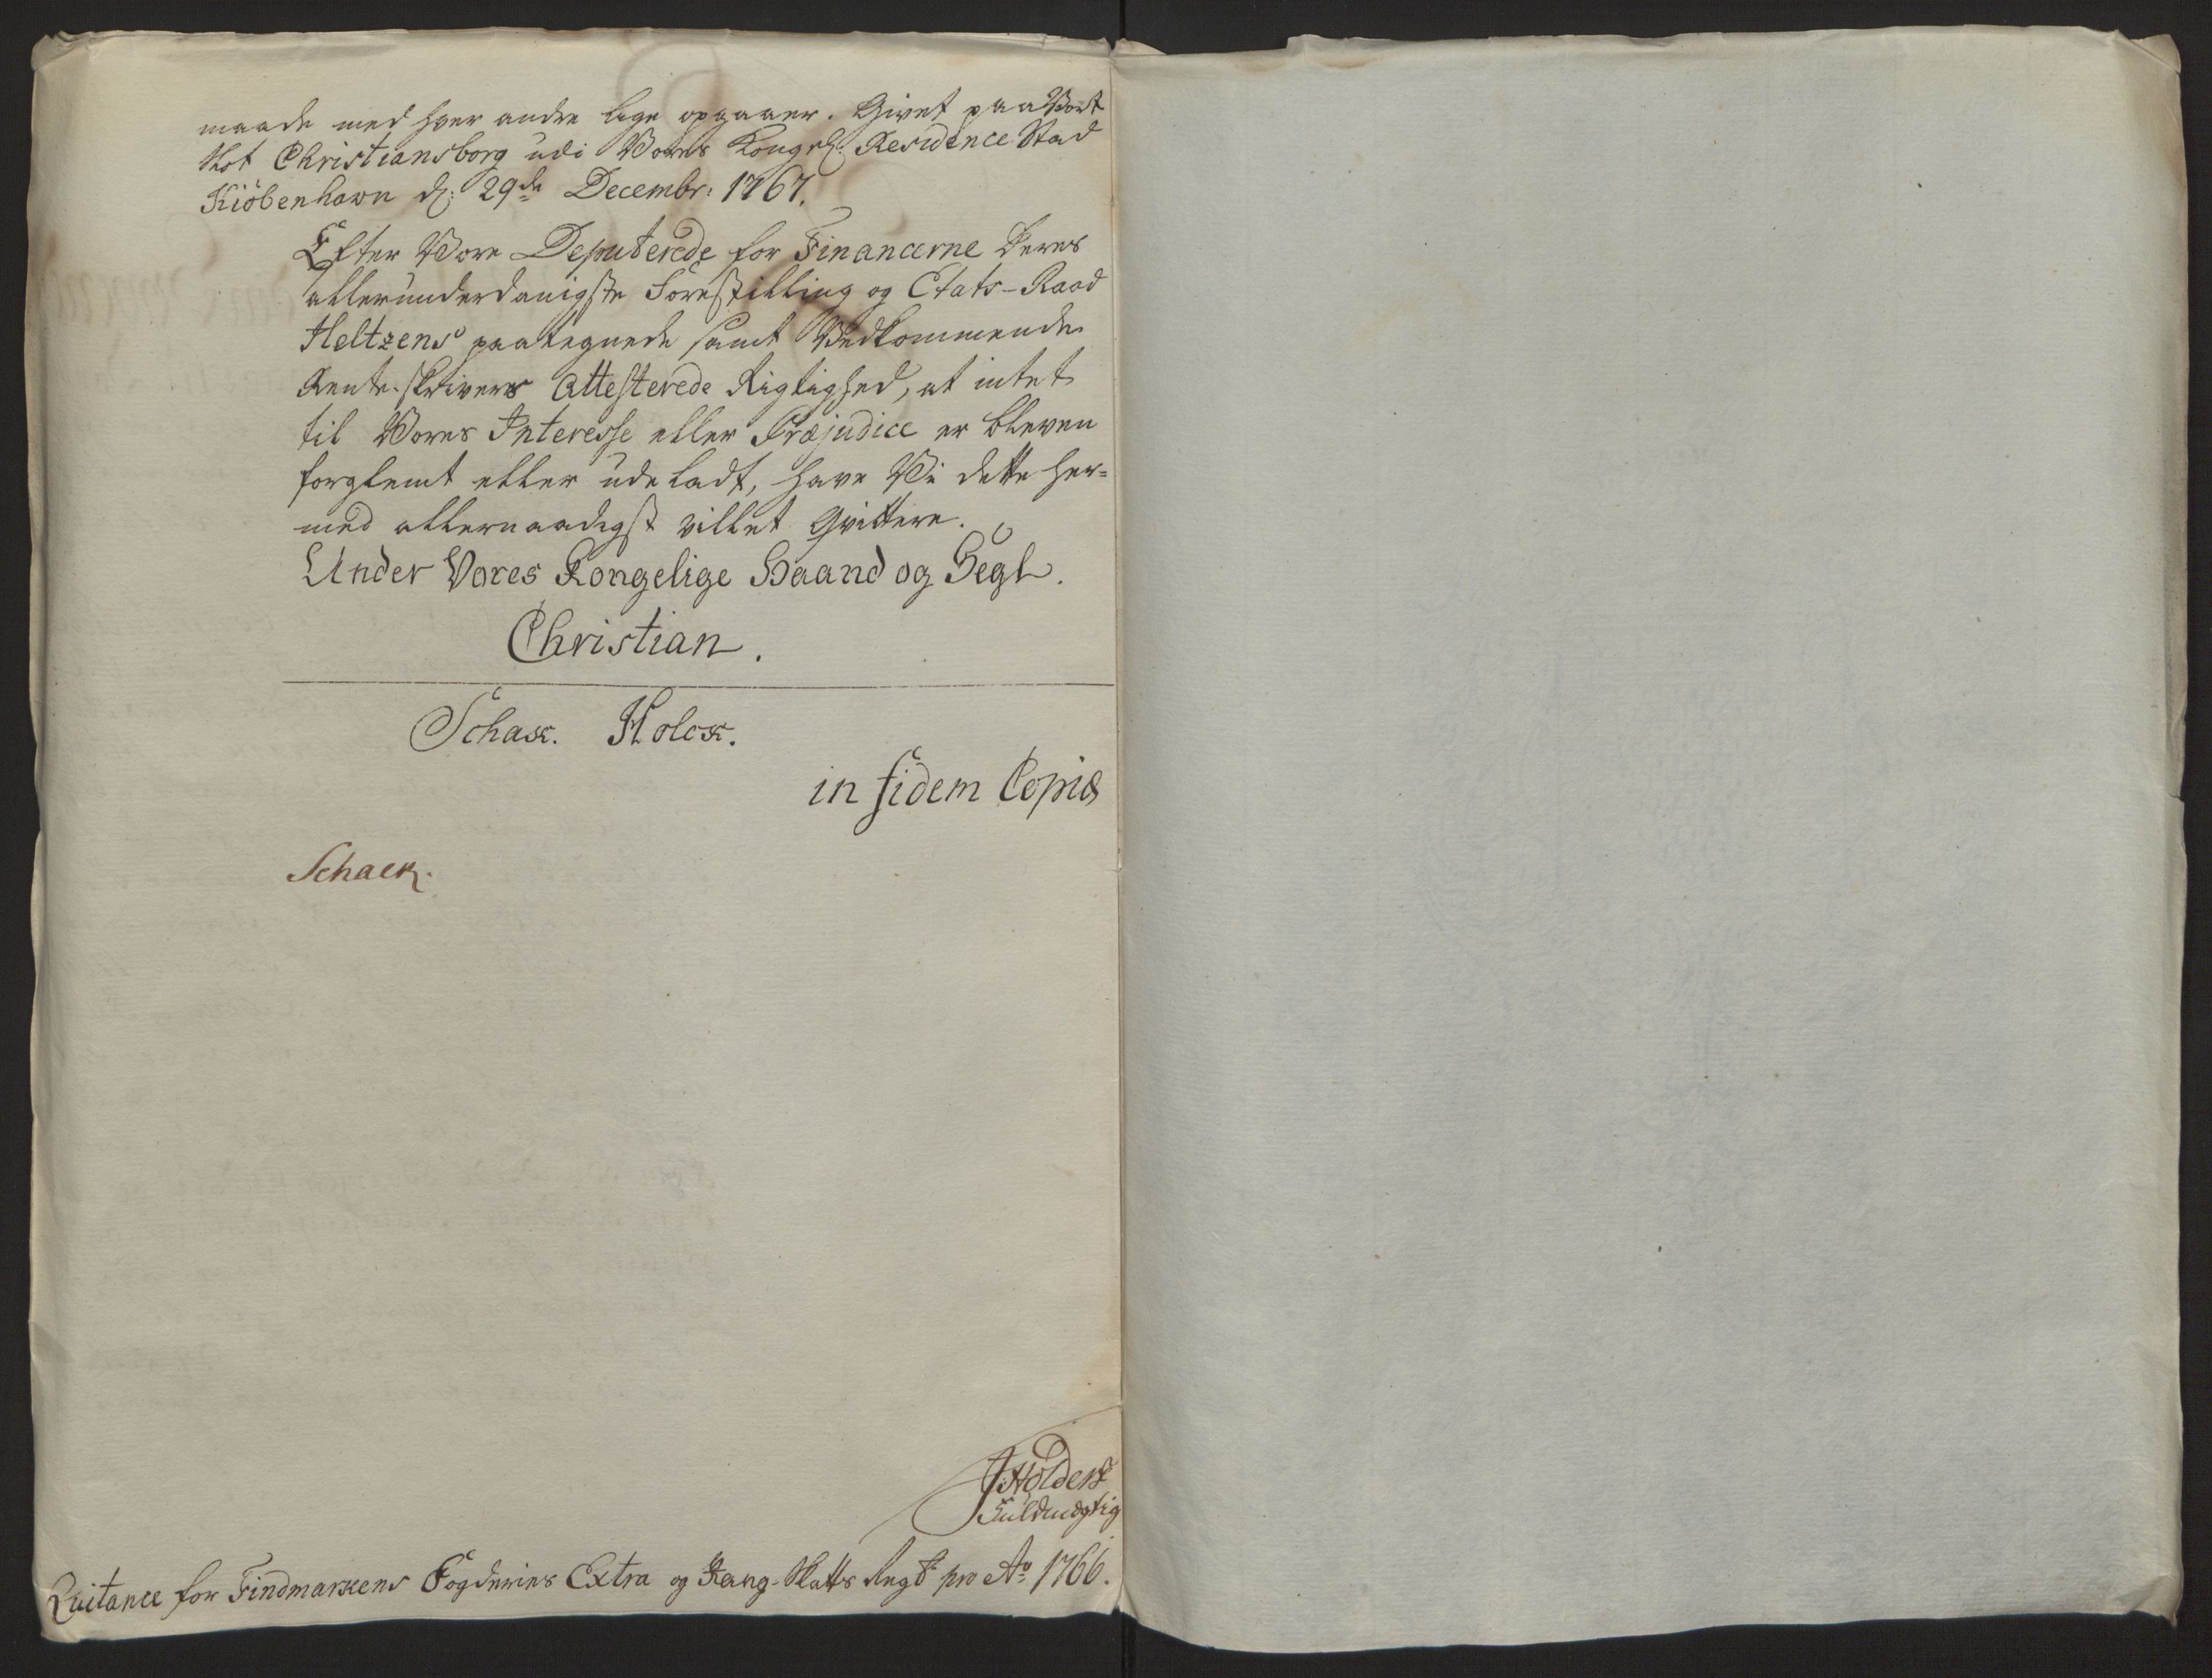 maade med hver andre lige opgaaer. Givet paa Vort
Slot Christiansborg udi Vores Kongel: Residence Stad
Kiöbenhavn d: 29de Decembr: 1767.
Efter Vore Deputerede for Financerne deres
allerunderdanigste Forestilling og Etats-Raad
Heltzens paategnede samt Vedkommende
Rente-skrivers Attesterede Rigtighed, at intet
til Vores Interesse eller Præjudice er bleven
forglemt eller udeladt, have Vi dette her=
med allernaadigst villet Qvittere.
Under Vores Kongelige Haand og Segl.
Christian.
Schack. Holck.
in fidem Copiæ
Schack.
Fuldmægtig
Quitance for Findmarkens Fogderies Extra og Rang-Skatts Regsk: pro Ao 1766.